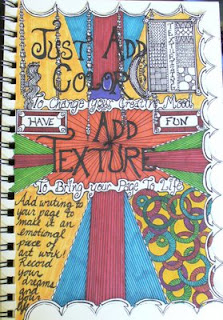 Just Add
Color
To Change Your Creative Mood
HAVE
FUN
Add
Texture
To Bring your Page To Life
Add writing to
your page to
make it an
emotional
piece of
art work!
Record
your
dreams
and
your
life